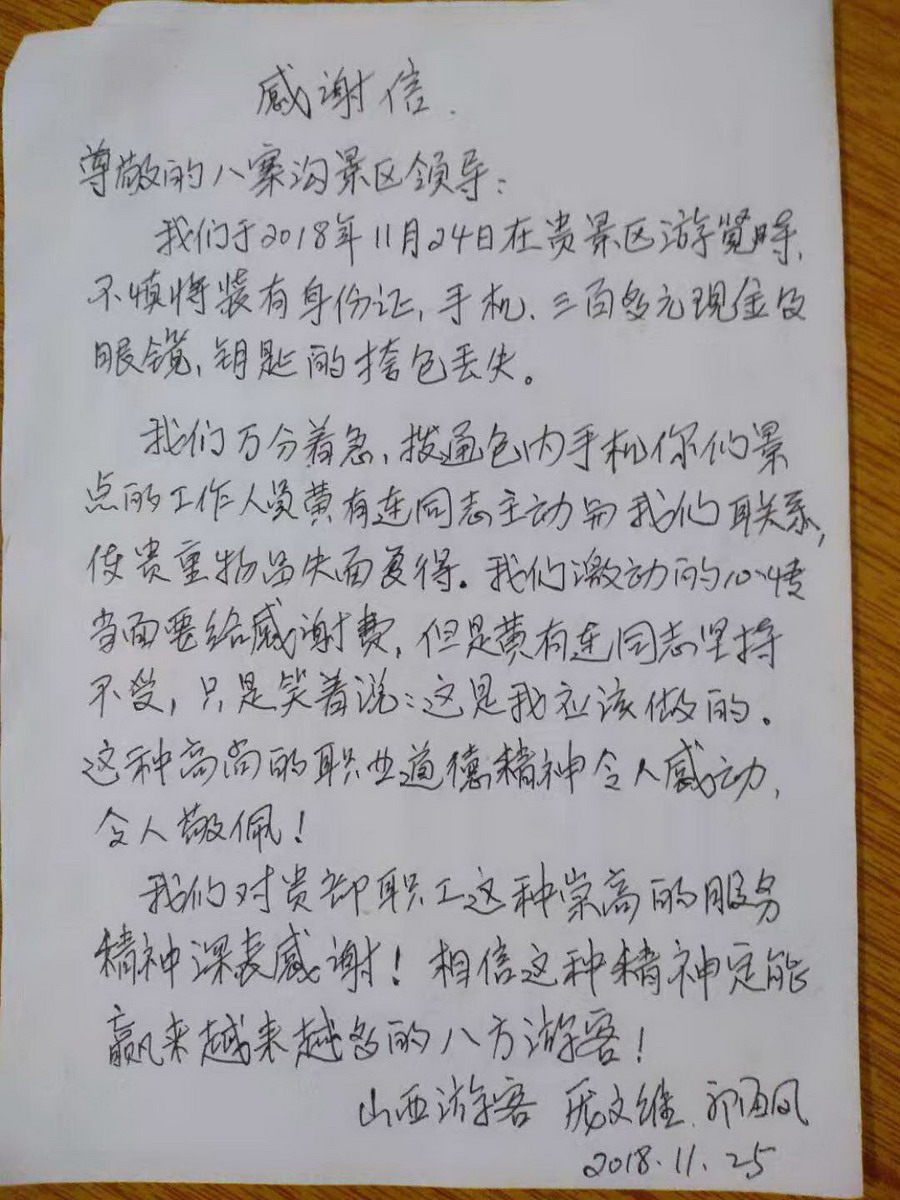 感谢信.
尊敬的八寨沟景区领导:
我们于2018年11月24日在贵景区游览时,
不慎将装有身份证,手机、三百多元现金及
眼镜,钥匙的挎包丢失。
我们万分着急,拨通包内手机你们景
点的工作人员黄有连同志主动与我们联系,
使贵重物品失而复得。我们激动的心情
当面要给感谢费,但是黄有连同志坚持
不受,只是笑着说:这是我应该做的。
这种高尚的职业道德精神令人感动,
令人敬佩!
我们对贵部职工这种崇高的服务
精神深表感谢!相信这种精神定能
赢来越来越多的八方游客!
山西游客 庞文维.
2018.11.25